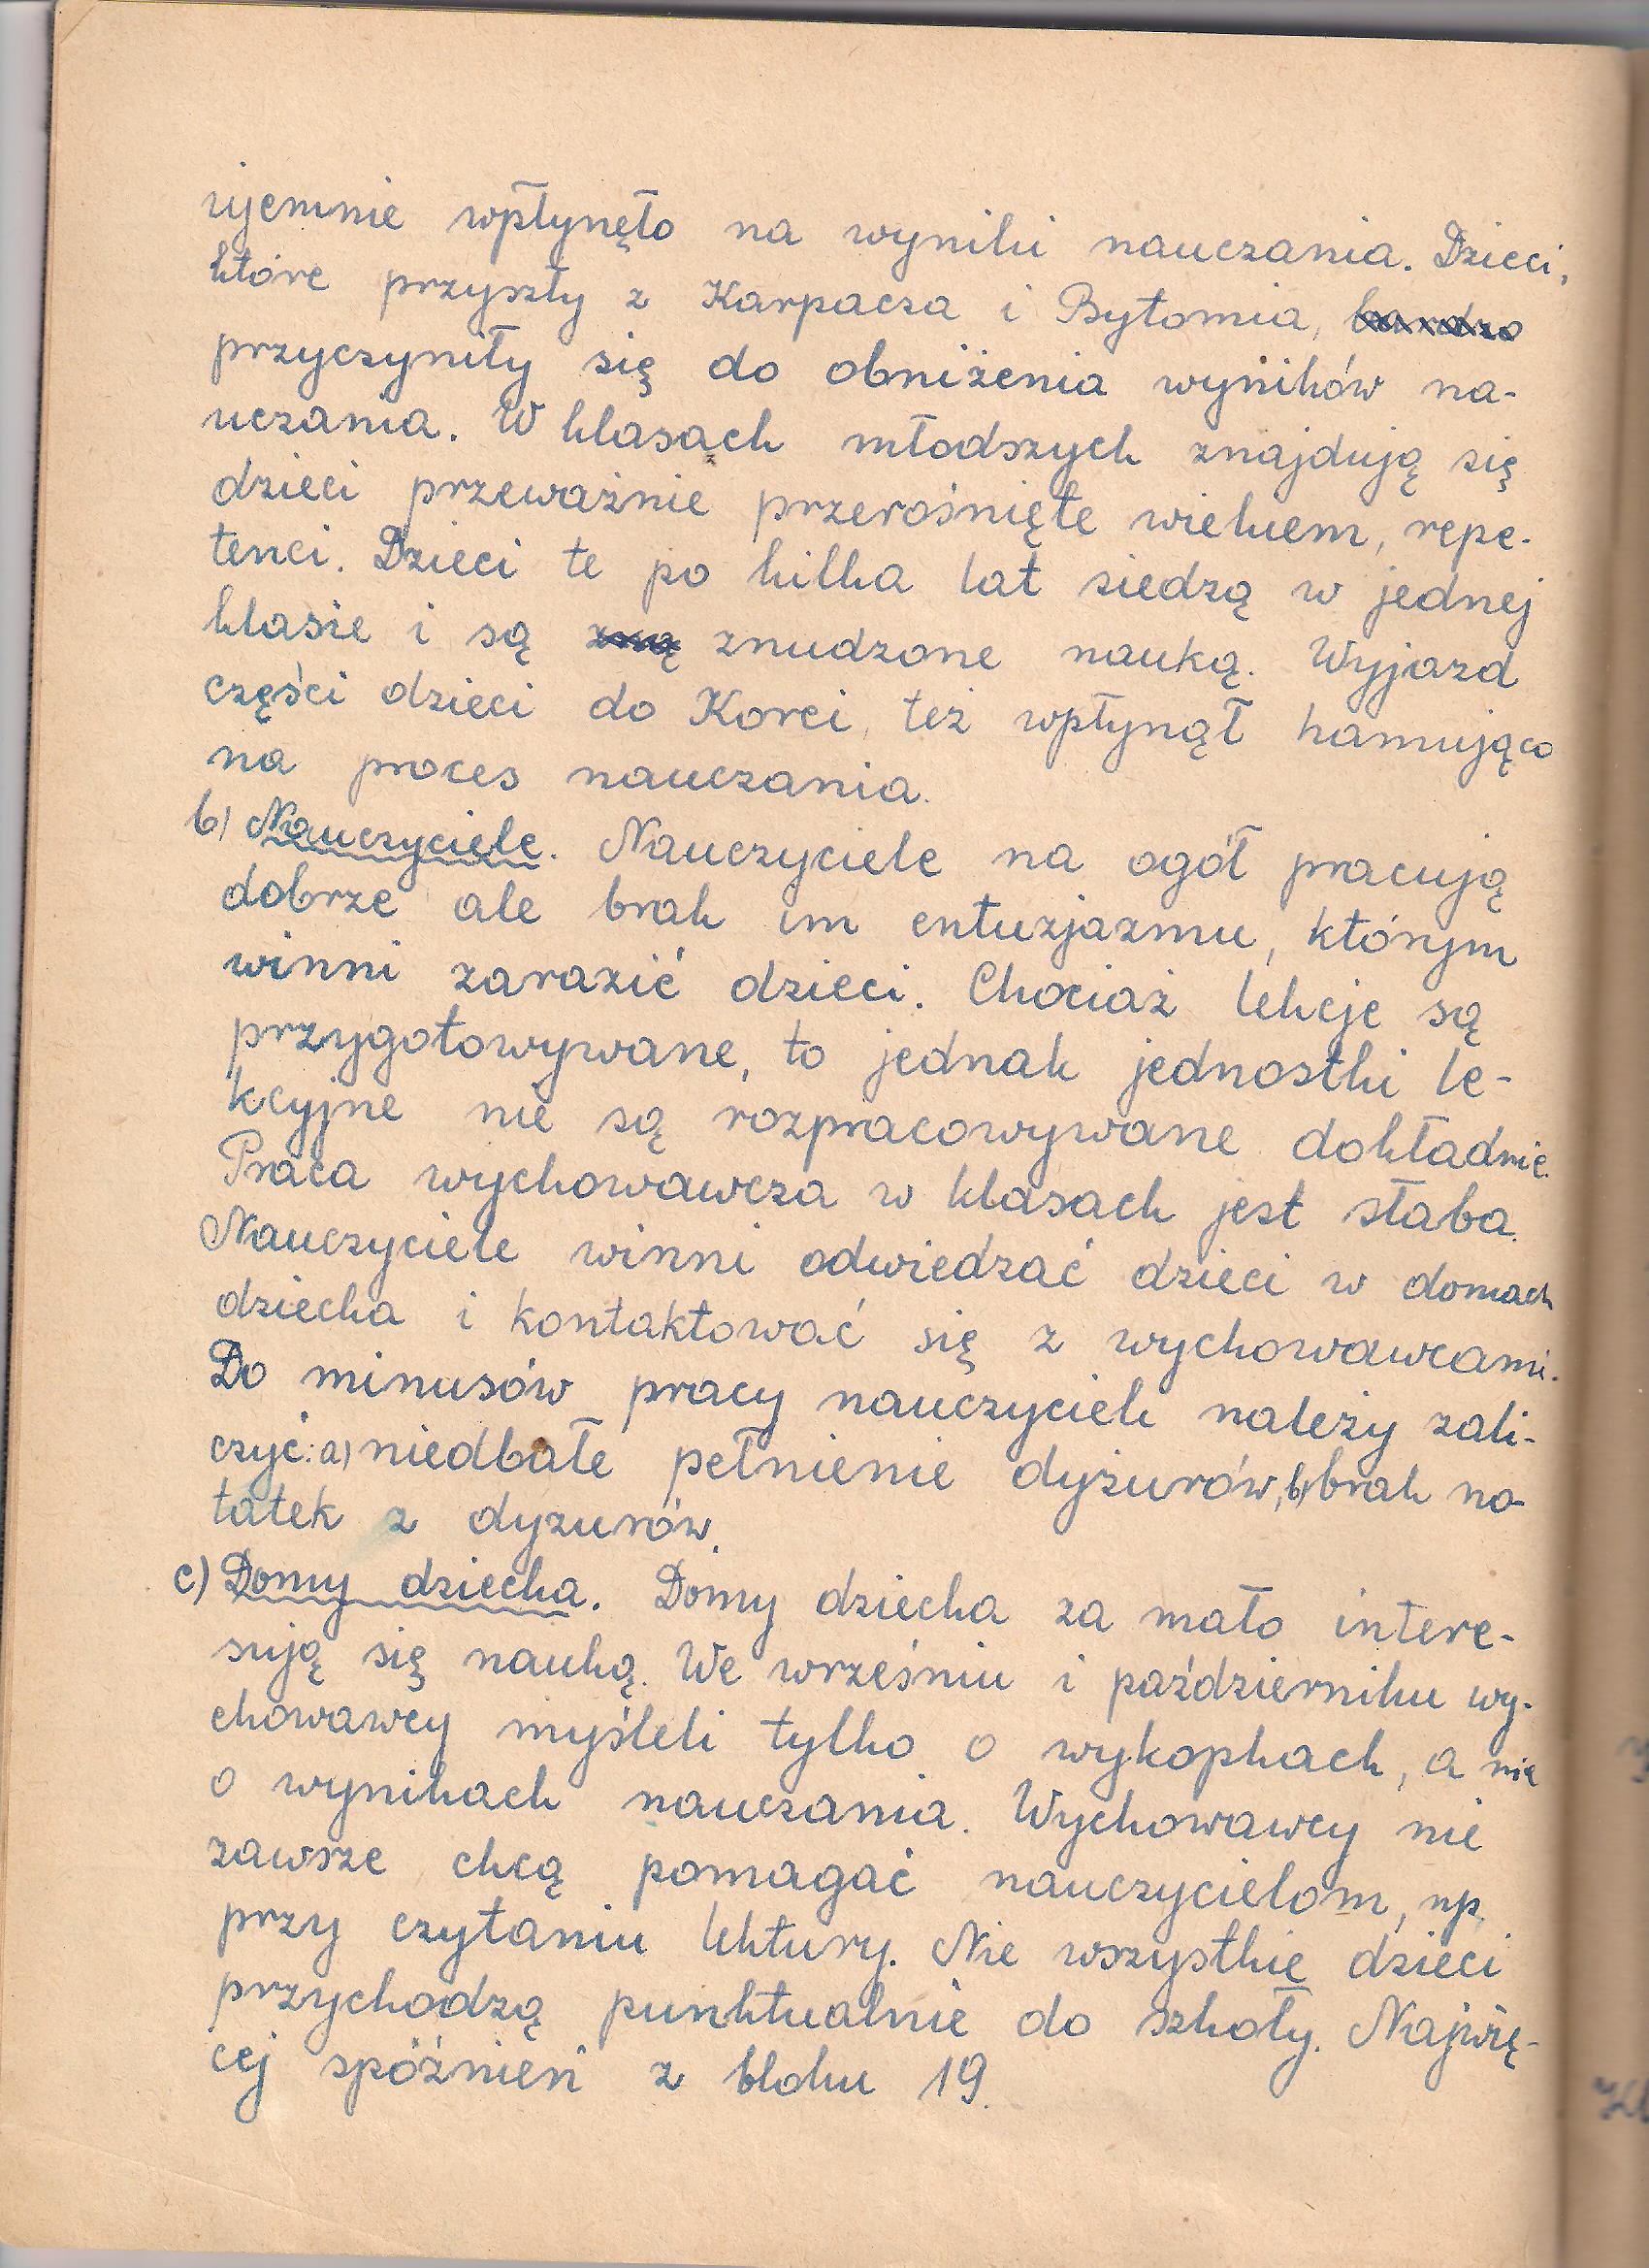 ujemnie wpłynęło na wyniki nauczania. Dzieci,
które przyszły z Karpacza i Bytomia, bardzo
przyczyniły się do obniżenia wyników na-
uczania. W klasach młodszych znajdują się
dzieci przeważnie przerośnięte wiekiem, repe-
tenci. Dzieci te po kilka lat siedzą w jednej
klasie i są znudzone nauką. Wyjazd
części dzieci do Korei, też wpłynął hamująco
na proces nauczania.
b) Nauczyciele. Nauczyciele na ogół pracują
dobrze ale brak im entuzjazmu, którym
winni zarazić dzieci. Chociaż lekcje są
przygotowywane, to jednak jednostki le-
kcyjne nie są rozpracowywane dokładnie.
Praca wychowawcza w klasach jest słaba.
Nauczyciele winni odwiedzać dzieci w domach
dziecka i kontaktować się z wychowawcami.
Do minusów pracy nauczycieli należy zali-
czyć: a) niedbałe pełnienie dyżurów, b) brak no-
tatek z dyżurów.
c) Domy dziecka. Domy dziecka za mało intere-
sują się nauką. We wrześniu i październiku wy-
chowawcy myśleli tylko o wykopkach, a nie
o wynikach nauczania. Wychowawcy nie
zawsze chcą pomagać nauczycielom, np.
przy czytaniu lektury. Nie wszystkie dzieci
przychodzą punktualnie do szkoły. Najwię-
cej spóźnień z bloku 19.